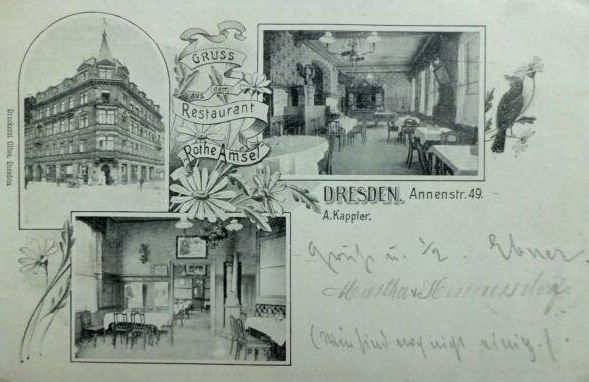 GRUSS
aus dem
Restaurant
Rothe Amsel
DRESDEN, Annenstr. 49.
A. Kappler.
Druckerei Glöss, Dresden
Gruß u. ½ . Ebner.
Martha
(Wir sind noch nicht einig.)